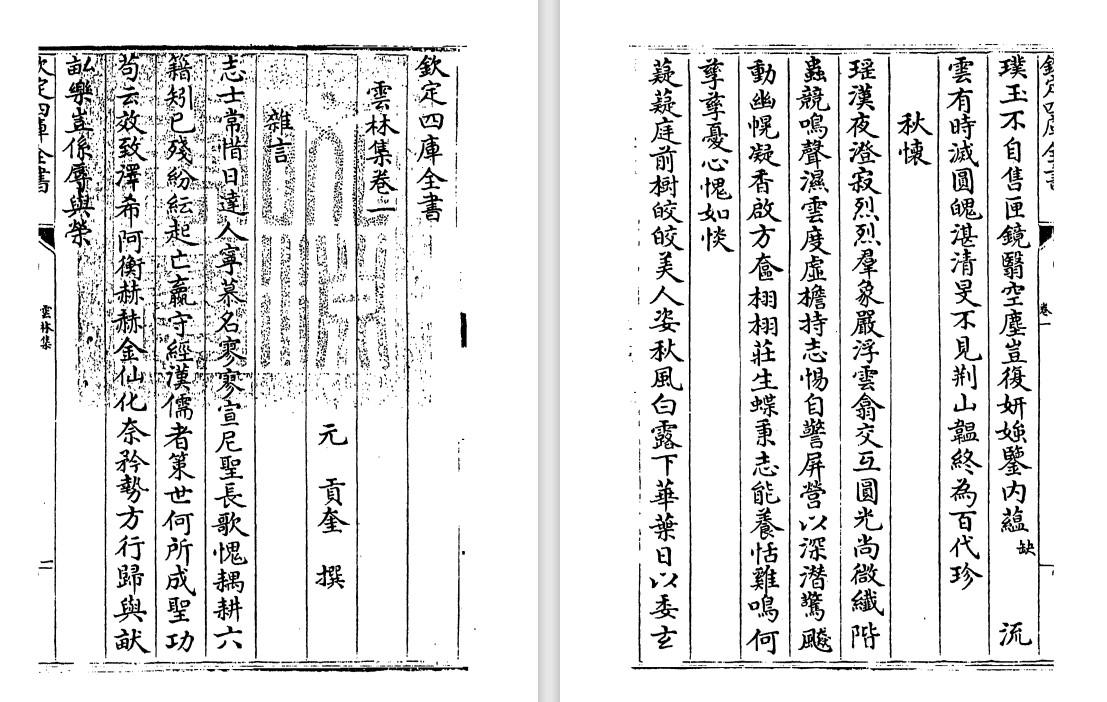 欽定四庫全書
雲林集卷一
元 貢奎 撰
雜言
志士常惜日達人寧慕名寥寥宣尼聖長歌愧耦耕六
籍矧已殘紛紜起亡嬴守經漢儒者策世何所成聖功
苟云效致澤希阿衡赫赫金仙化奈矜勢方行歸與畎
畝樂豈係辱與榮
欽定四庫全書
雲林集
欽定四庫全書
卷一
璞玉不自售匣鏡翳空塵豈復妍媸鑒内蘊缺 流
雲有時滅圓魄湛清旻不見荆山韞終為百代珍
秋懷
瑶漢夜澄寂烈烈羣象嚴浮雲翕交互圓光尚微纖階
蟲競鳴聲濕雲度虛檐持志惕自警屏營以深潛驚飈
動幽幌凝香啟方奩栩栩莊生蝶秉志能養恬雞鳴何
孳孳憂心愧如惔
薿薿庭前樹皎皎美人姿秋風白露下華葉日以委玄